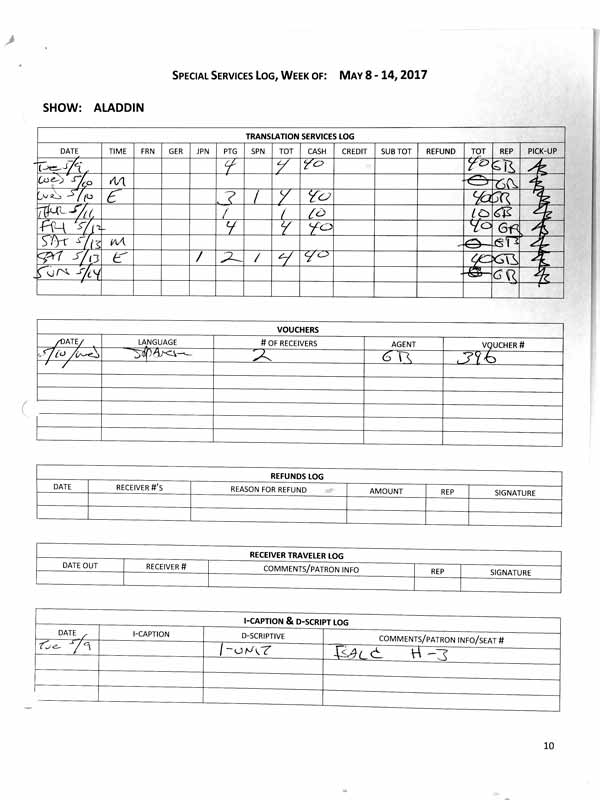 SPECIAL SERVICES LOG, WEEK OF: MAY 8 - 14, 2017
SHOW: ALADDIN
TRANSLATION SERVICES LOG
DATE TIME FRN GER JPN PTG SPN TOT CASH CREDIT SUB TOT REFUND TOT REP PICK-UP
Tue 5/9 4 4 40 40 GB
Wed 5/10 M 0 GB
Wed 5/10 E 3 1 4 40 40 GB
THU 5/11 1 1 10 10 GB
FRI 5/12 4 4 40 40 GB
SAT 5/13 M 0 GB
SAT 5/13 E 1 2 1 4 40 40 GB
SUN 5/14 0 GB
VOUCHERS
DATE LANGUAGE # OF RECEIVERS AGENT VOUCHER #
5/10/Wed 2 GB 396
REFUNDS LOG
DATE RECEIVER #'S REASON FOR REFUND AMOUNT REP SIGNATURE
RECEIVER TRAVELER LOG
DATE OUT RECEIVER # COMMENTS/PATRON INFO REP SIGNATURE
I-CAPTION & D-SCRIPT LOG
DATE I-CAPTION D-SCRIPTIVE COMMENTS/PATRON INFO/SEAT #
Tue 5/9 1-UNIT H-3
10